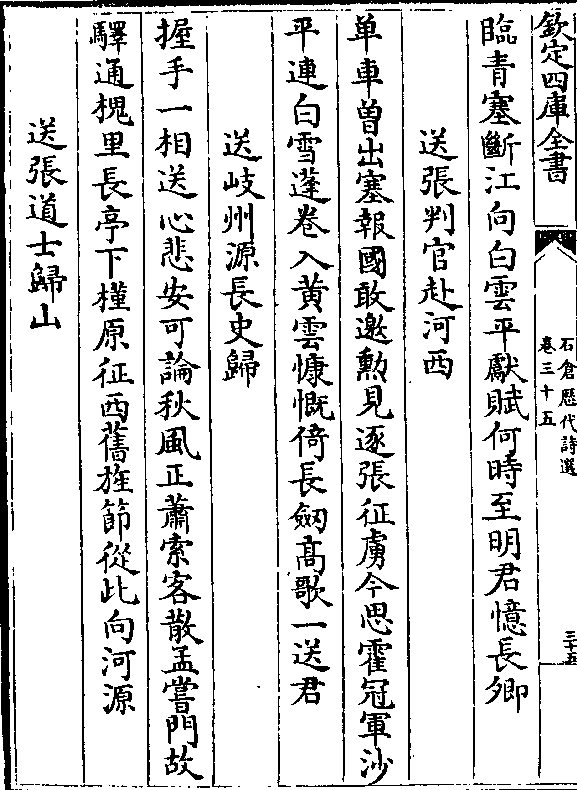 欽定四庫全書
石倉歷代詩選
卷三十五
三十五
臨青塞斷江向白雲平獻賦何時至明君憶長卿
送張判官赴河西
单車曽出塞報國敢邀勲見逐張征虜今思霍冠軍沙
平連白雪蓬卷入黄雲慷慨倚長劒髙歌一送君
送岐州源長史歸
握手一相送心悲安可論秋風正蕭索客散孟嘗門故
驛通槐里長亭下槿原征西舊旌節從此向河源
送張道士歸山